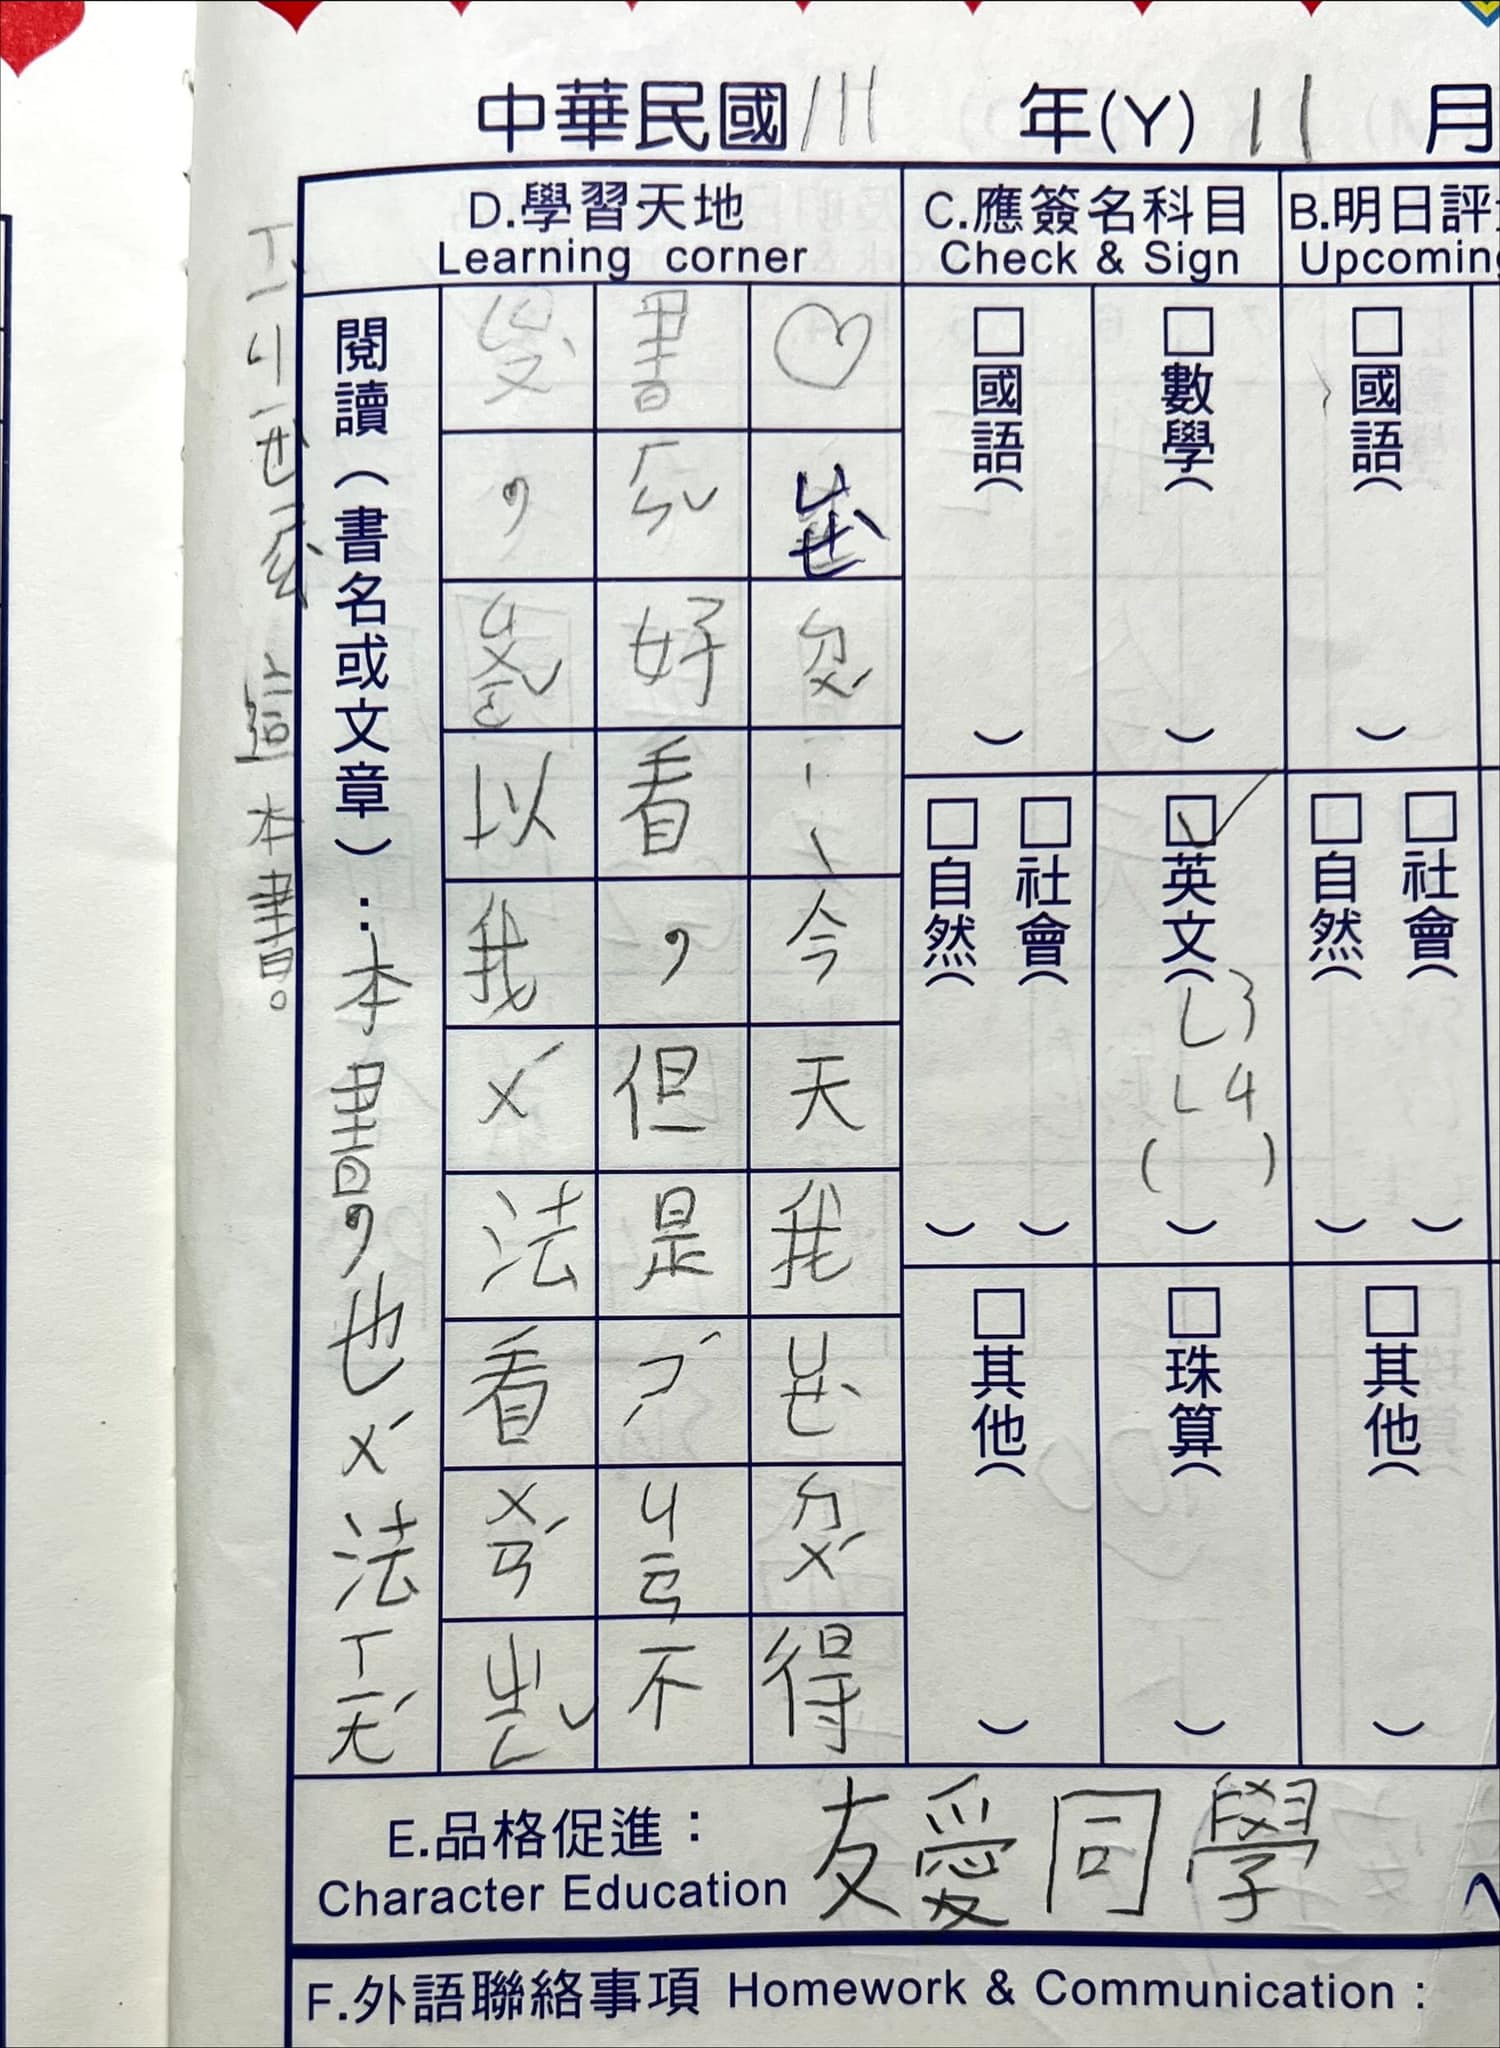 中華民國111 年(Y) 11 月
D.學習天地
Learning corner
C.應簽名科目
Check & Sign
B.明日評
Upcoming
♡ㄐㄝˋㄉㄨˊ：今天我ㄐㄝˋㄉㄨˊ得
書ㄏㄣˇ好看，但是ㄗˊㄐㄧㄢ不
，以我ㄨˊ法看ㄨㄢˊ
閱讀（書名或文章）：本書，也ㄨˊ法ㄒㄧㄤˊ
這本書。
□數學( )
□國語( )
□英文(L3
L4
( )
)
□社會( )
□自然( )
□珠算( )
□其他( )
□國語( )
□社會( )
□自然( )
□其他( )
E.品格促進：
Character Education
友愛同學
F.外語聯絡事項 Homework & Communication :